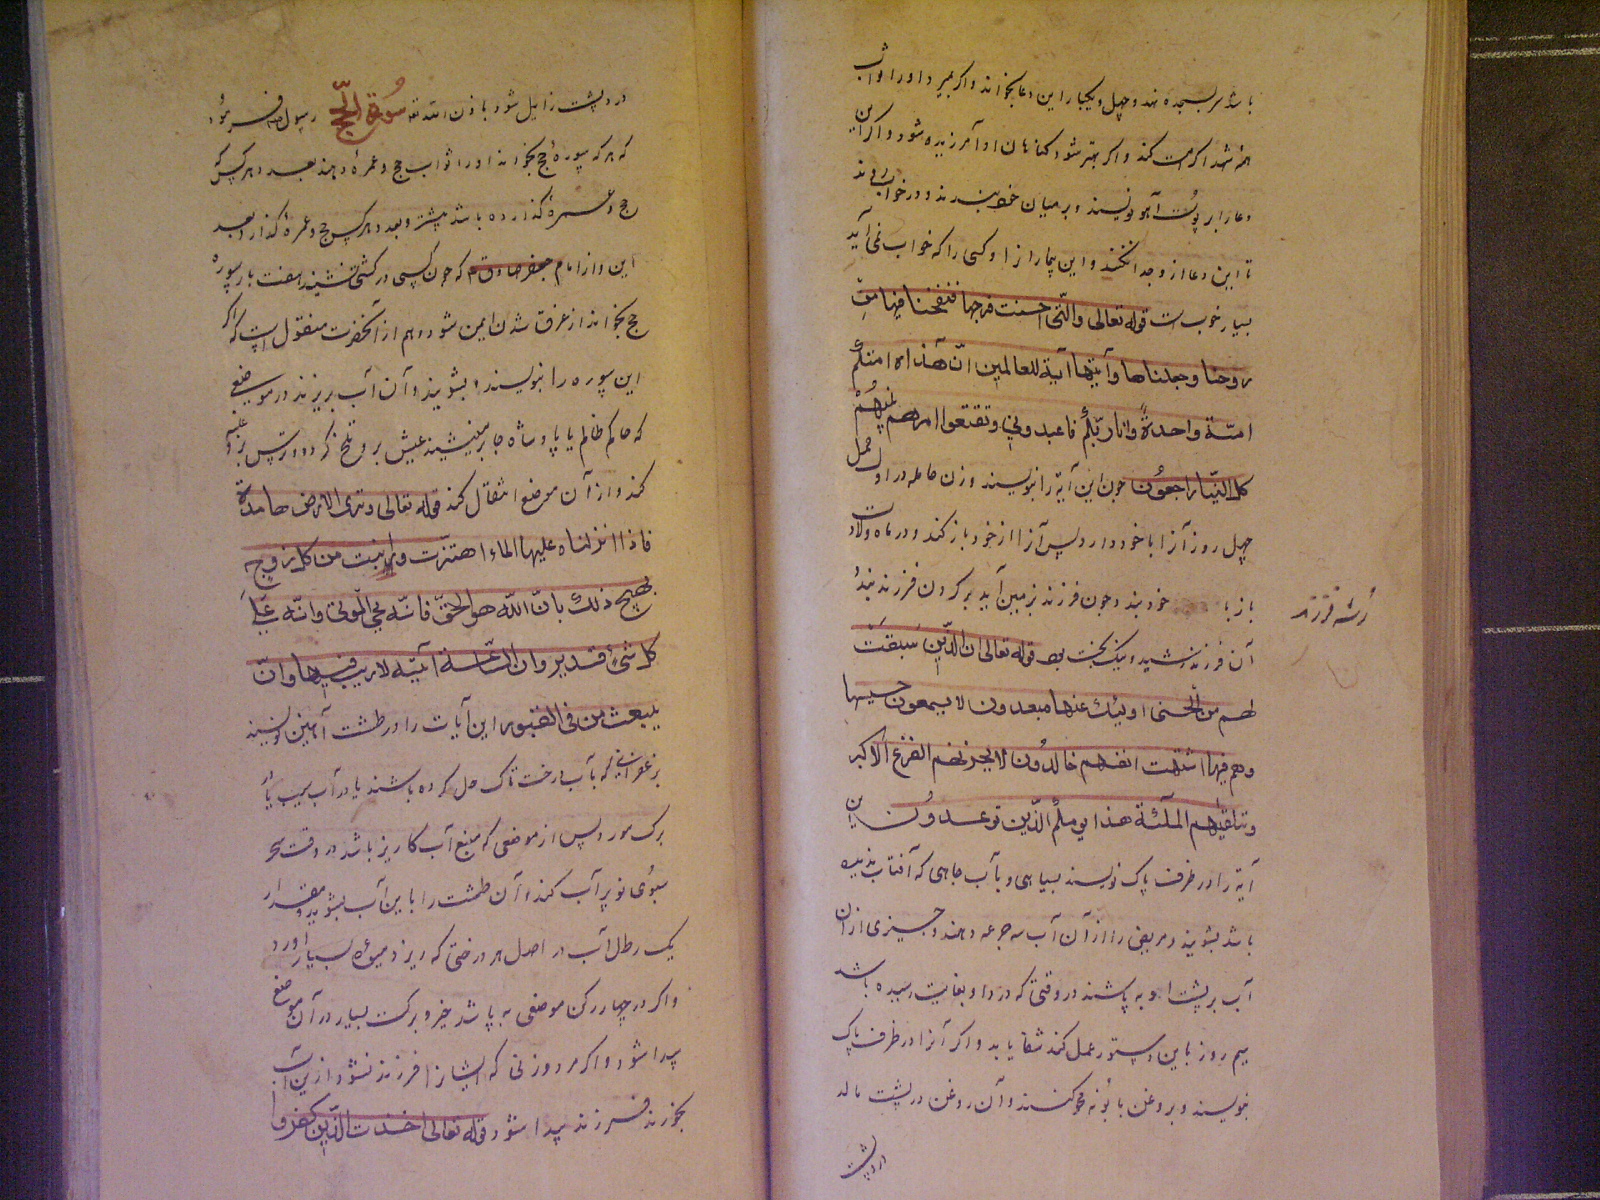 باشد سر بسجده نهد و چهل و یکبار این دعا بخواند و اگر بمیرد او را ثواب
شهدا کرامت کند و اگر بهتر شود گناهان او آمرزیده شود و اگر این
دعا را بر پوست آهو نویسند و بر میان بندند و در خواب روند
تا این دعا از وجدا نکنند و این بیمار از او کسی را که خواب نمی آید
بسیار خوب است قوله تعالی والتی احصنت فرجها فنفخنا فیها من
روحنا وجعلناها وآیتها آیة للعالمین انّ هذه امتکم
امّة واحدةً وانا ربّکم فاعبدونی وتقتعوا امرهم بینهم
کل الینا راجعون چون این آیة را بنویسند و زن حامله در اول حمل
چهل روز آنرا با خود دارد پس آنرا از خود باز کند و در ماه ولادت
باز با خود بندد چون فرزند بزمین آید بر گردن فرزند بندد
آن فرزند رشید و نیک بخت بود قوله تعالی ان الذین سبقت
لهم من الحسنی اولئک عنها مبعدون لا یسمعون حسیسها
وهم فیما اشتهت انفسهم خالدون لا یحزنهم الفزع الاکبر
وتتلقیهم الملئکة هذا یومکم الذین توعدون این
آیة را در ظرف پاک نویسند بسیاهی و بآب چاهی که آفتاب ندیده
باشد بشویند و مریض را از آن آب سه جرعه دهند و چیزی از آن
آب بر پشت او به پاشند در وقتی که درد او بغایت رسیده باشد
سیم روز باین دستور عمل کنند شفا یابد و اگر آنرا در ظرف پاک
بنویسند و بروغن بابونه محو کنند و آن روغن در پشت مالد
درد پشت
فرزند
درد پشت زایل شود باذن الله تع سورة الحج رسول ص فرمود
که هر که سورهٔ حج بخواند او را ثواب حج و عمره دهند بعدد هر کس که
حج و عمره گذارده باشد پیشتر و بعدد هر کس که حج و عمره گذارد بعد
این و از امام جعفر صادق ع که چون کسی در کشتی نشیند هفت بار سوره
حج بخواند از غرق شدن ایمن شود و هم از آنحضرت منقول است که اگر
این سوره را بنویسند و بشویند و آن آب بریزند در موضعی
که حاکم ظالم یا پادشاه جابر می نشیند عیش برو تلخ گردد و ترس برو غلبه
کند و از آن موضع انتقال کند قوله تعالی وتری الارض هامدة
فاذا انزلناه علیها الماء اهتزت و انبتت من کل زوج
بهیج ذلک بان الله هو الحقّ فانه یحی الموتی وانه علی
کل شیء قدیر وان الساعة آتیة لا ریب فیها وانّ
یبعث من فی القبور این آیات را در طشت آهنین نویسند
بزعفرانی که بآب درخت تاک حل کرده باشند یا در آب سیب یا از
برک مورد پس از موضعی که منبع آب کاریز باشد در وقت سحر
سبوی نو پر آب کند و آن طشت را باین آب بشوید و مقدار
یک رطل آب در اصل هر درختی که ریزد میوه بسیار آورد
و اگر در چهار رکن موضعی به پاشد خیر و برکت بسیار در آن موضع
پیدا شود و اگر مرد و زنی که ایشانرا فرزند نشود ازین آب
بخورند فرزند پیدا شود قوله تعالی اخذت الذین کفروا